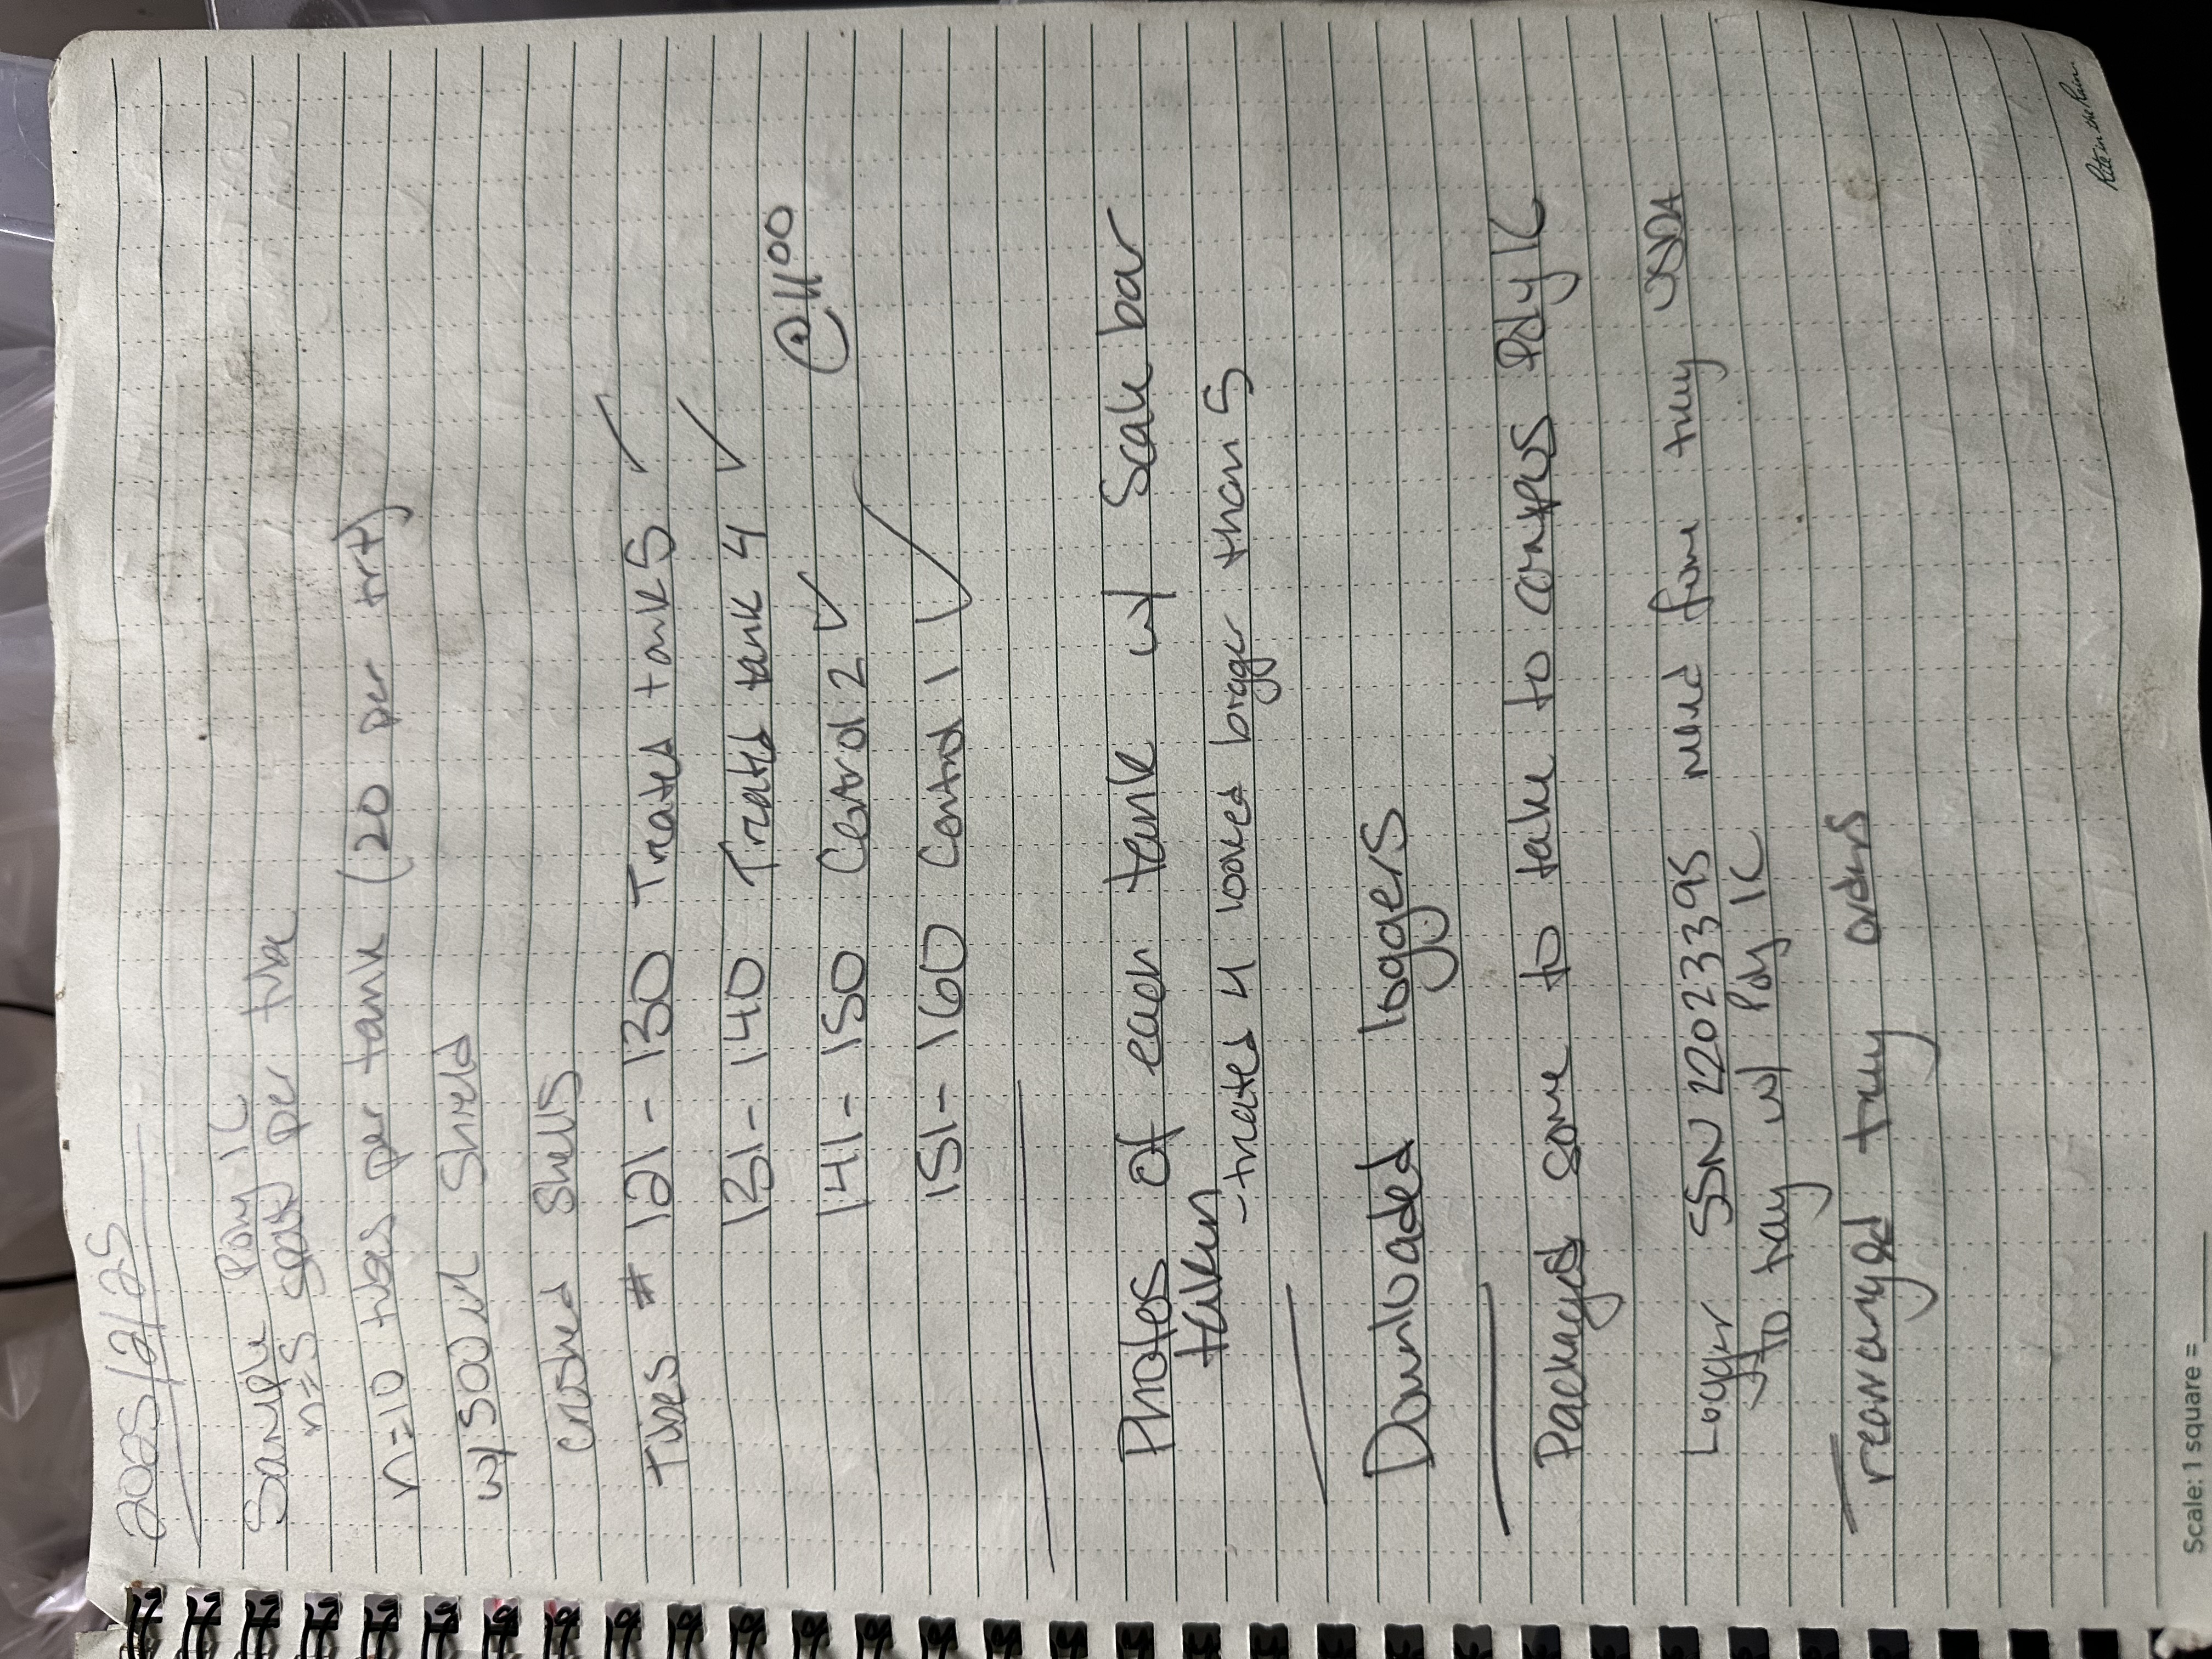 2025/2/25
Sample Poly IC
n=5 spat per tube
n=10 tubes per tank (20 per trt)
w/ 500 ul Shield
crushed shells
Tubes # 121 - 130 Treated tank 5 ✓
131 - 140 Treated tank 4 ✓
@ 11 00
141 - 150 Control 2 ✓
151 - 160 Control 1 ✓
Photos of each tank w/ Scale bar
taken
- treated 4 looked bigger than 5
Downloaded loggers
Packaged some to take to campus Poly IC
Logger SSN 22023395 from tray USDA
to tray w/ Poly IC
rearranged tray orders
Rite in the Rain
Scale: 1 square =